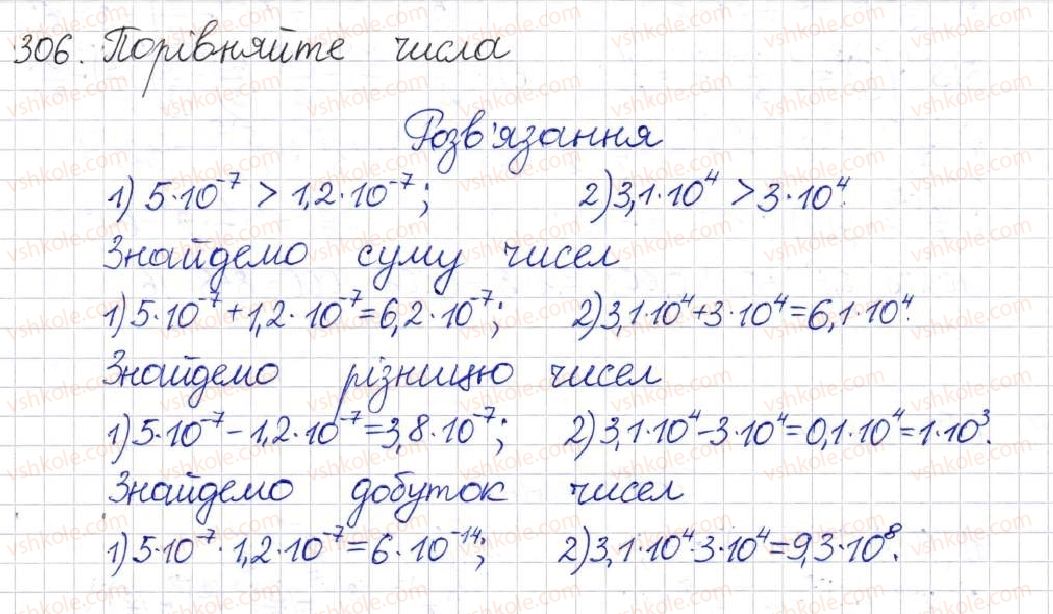 306. Порівняйте числа
Розв'язання
1) 5·10⁻⁷ > 1,2·10⁻⁷; 2) 3,1·10⁴ > 3·10⁴.
Знайдемо суму чисел
1) 5·10⁻⁷ + 1,2·10⁻⁷ = 6,2·10⁻⁷; 2) 3,1·10⁴ + 3·10⁴ = 6,1·10⁴.
Знайдемо різницю чисел
1) 5·10⁻⁷ - 1,2·10⁻⁷ = 3,8·10⁻⁷; 2) 3,1·10⁴ - 3·10⁴ = 0,1·10⁴ = 1·10³.
Знайдемо добуток чисел
1) 5·10⁻⁷ · 1,2·10⁻⁷ = 6·10⁻¹⁴; 2) 3,1·10⁴ · 3·10⁴ = 9,3·10⁸.
vshkole.com